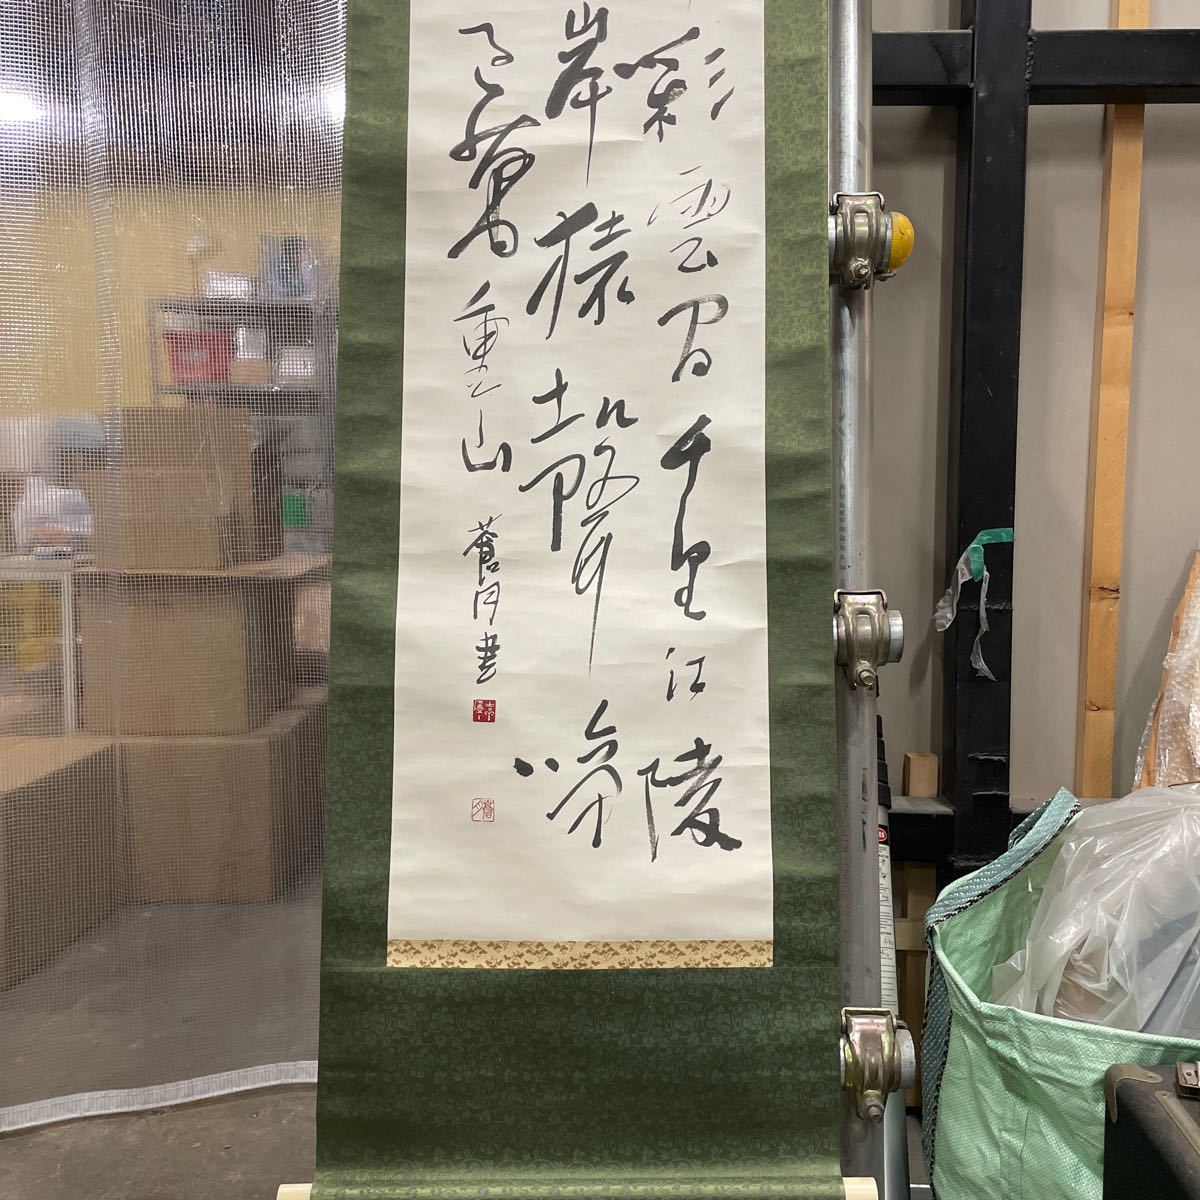 彩雲間千里江陵
岸猿聲啼
過萬重山 蒼月書